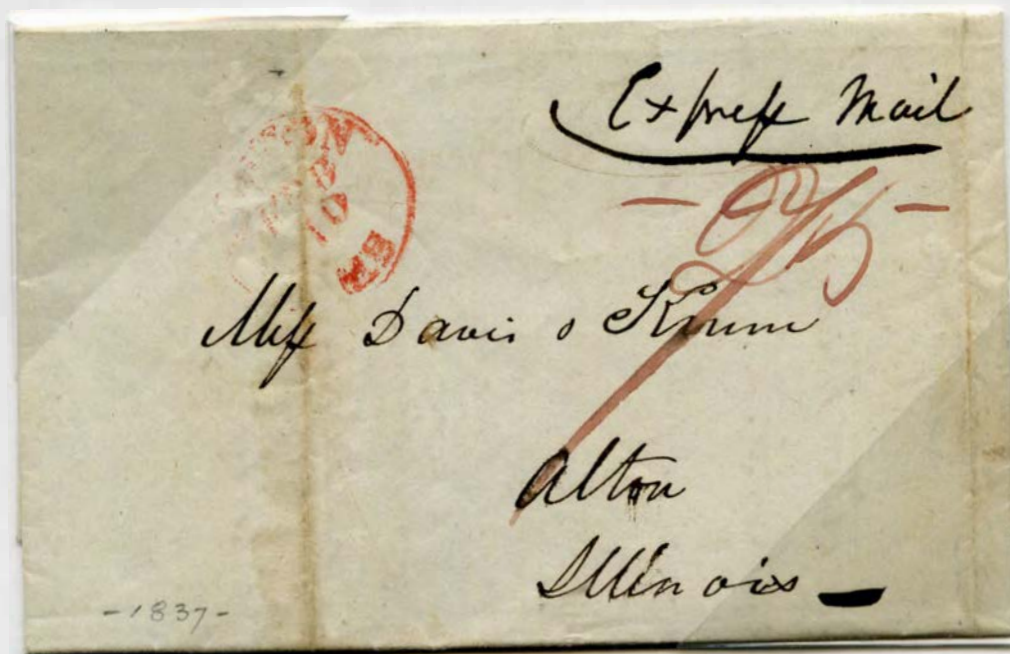 Express Mail
BOSTON
FEB
10
MS
- 75 -
Mess Davis & Krum
Alton
Illinois
-1837-